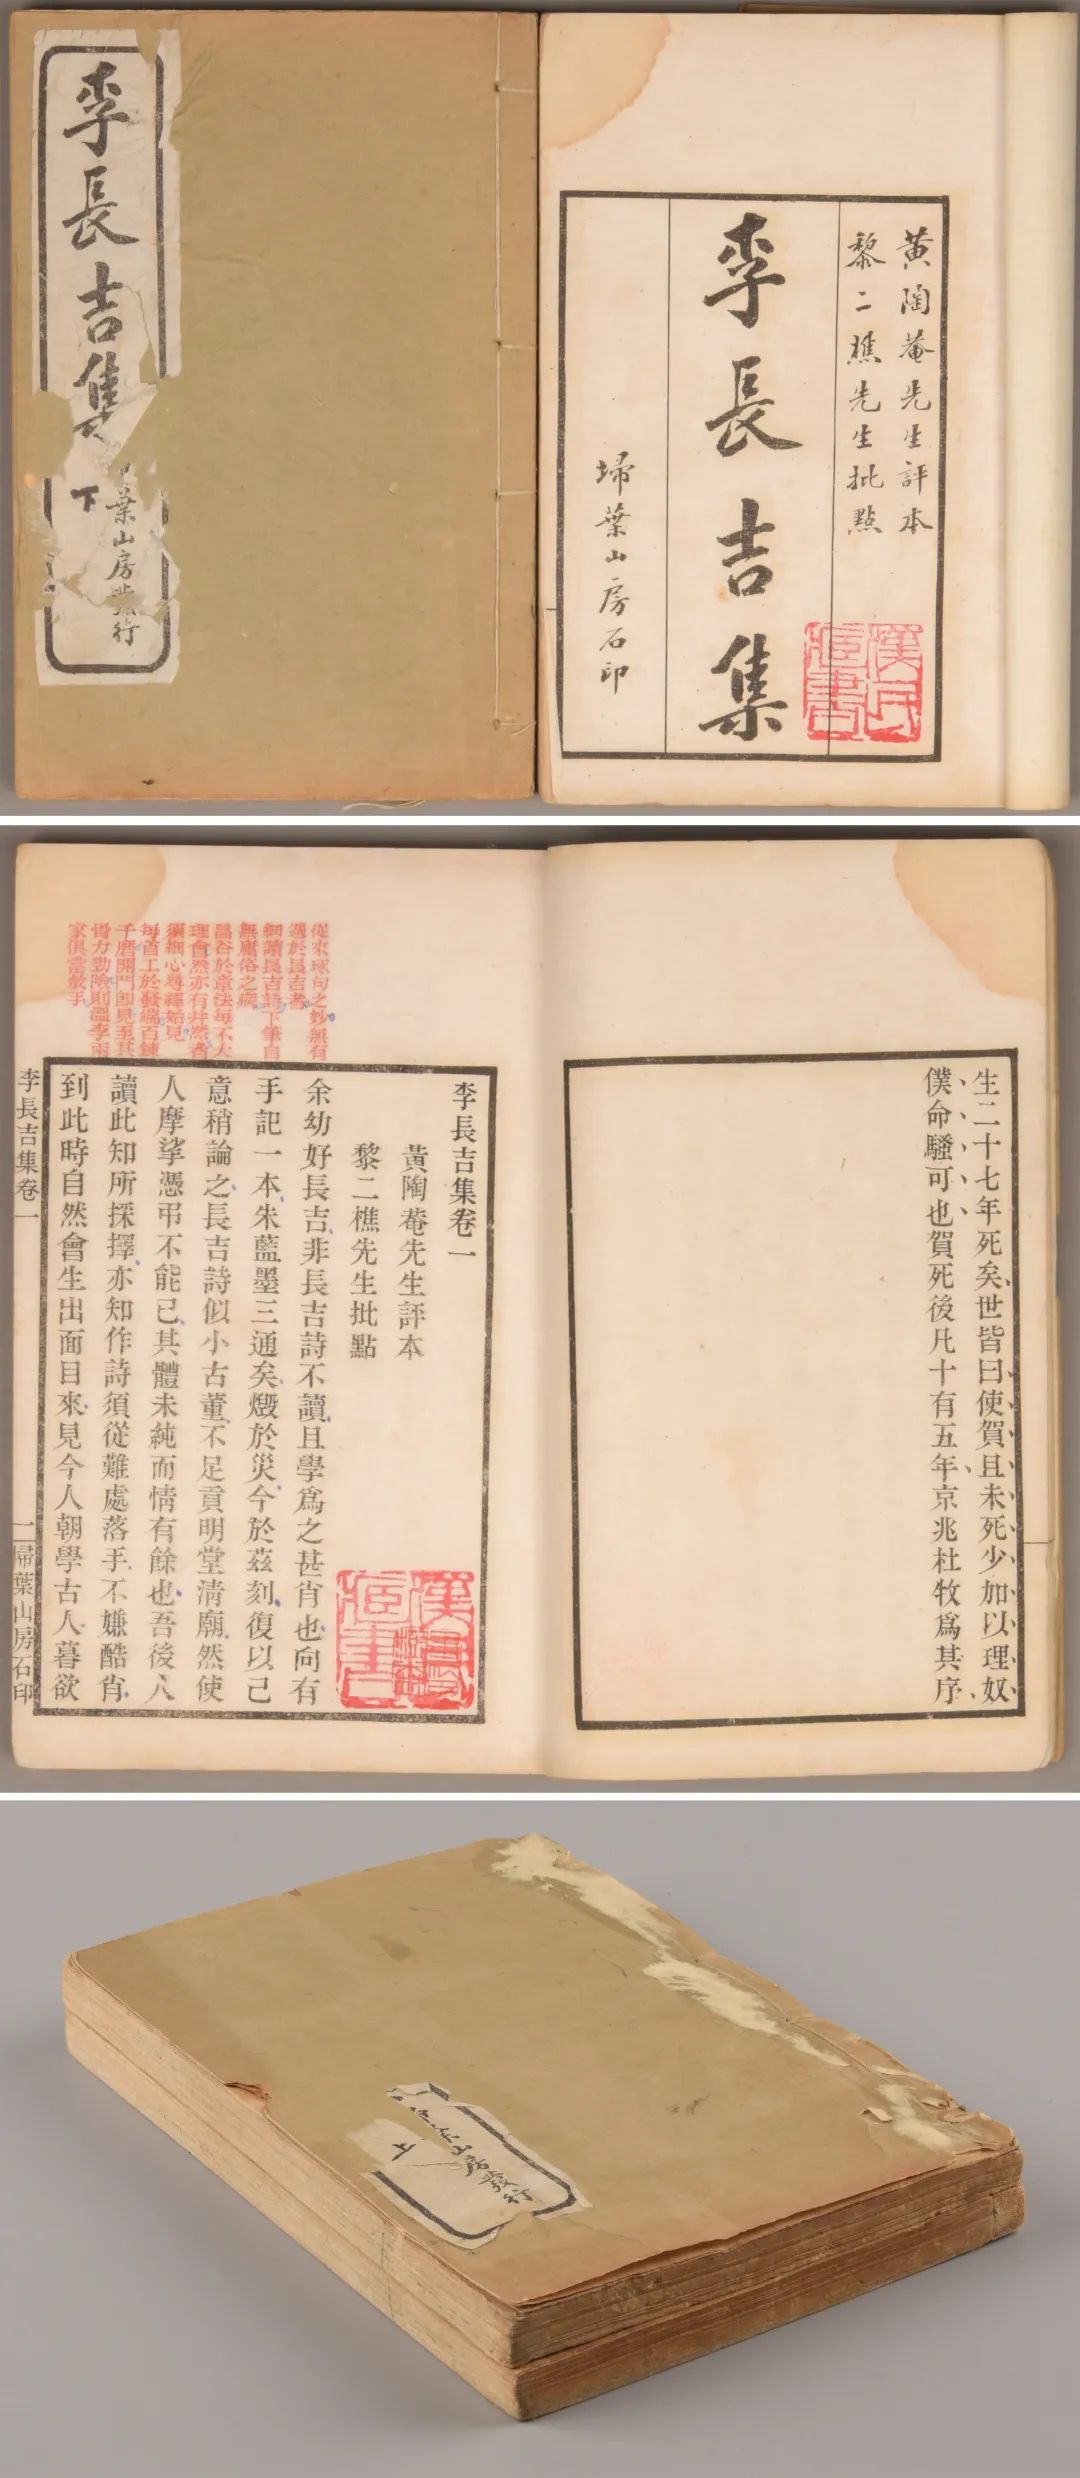 李長吉集
下
葉山房發行
黄陶菴先生評本
黎二樵先生批點
李長吉集
埽葉山房石印
漢
藏書
生二十七年死矣世皆曰使賀且未死少加以理奴
僕命騷可也賀死後凡十有五年京兆杜牧爲其序
從來琢句之妙無有
過於長吉者
細讀長吉詩下筆自
無庸俗之病
昌谷於章法每不大
理會然亦有井然者
須細心尋繹始見
每首工於發端百鍊
千磨開門即見至其
骨力勁險則溫李兩
家俱當斂手
李長吉集卷一
黃陶菴先生評本
黎二樵先生批點
余幼好長吉非長吉詩不讀且學爲之甚肖也向有
手記一本朱藍墨三通矣燬於災今於茲刻復以己
意稍論之長吉詩似小古董不足貢明堂清廟然使
人摩挲憑弔不能已其體未純而情有餘也吾後人
讀此知所採擇亦知作詩須從難處落手不嫌酷肖
到此時自然會生出面目來見今人朝學古人暮欲
李長吉集卷一
一
埽葉山房石印
藏書
上
山房發行